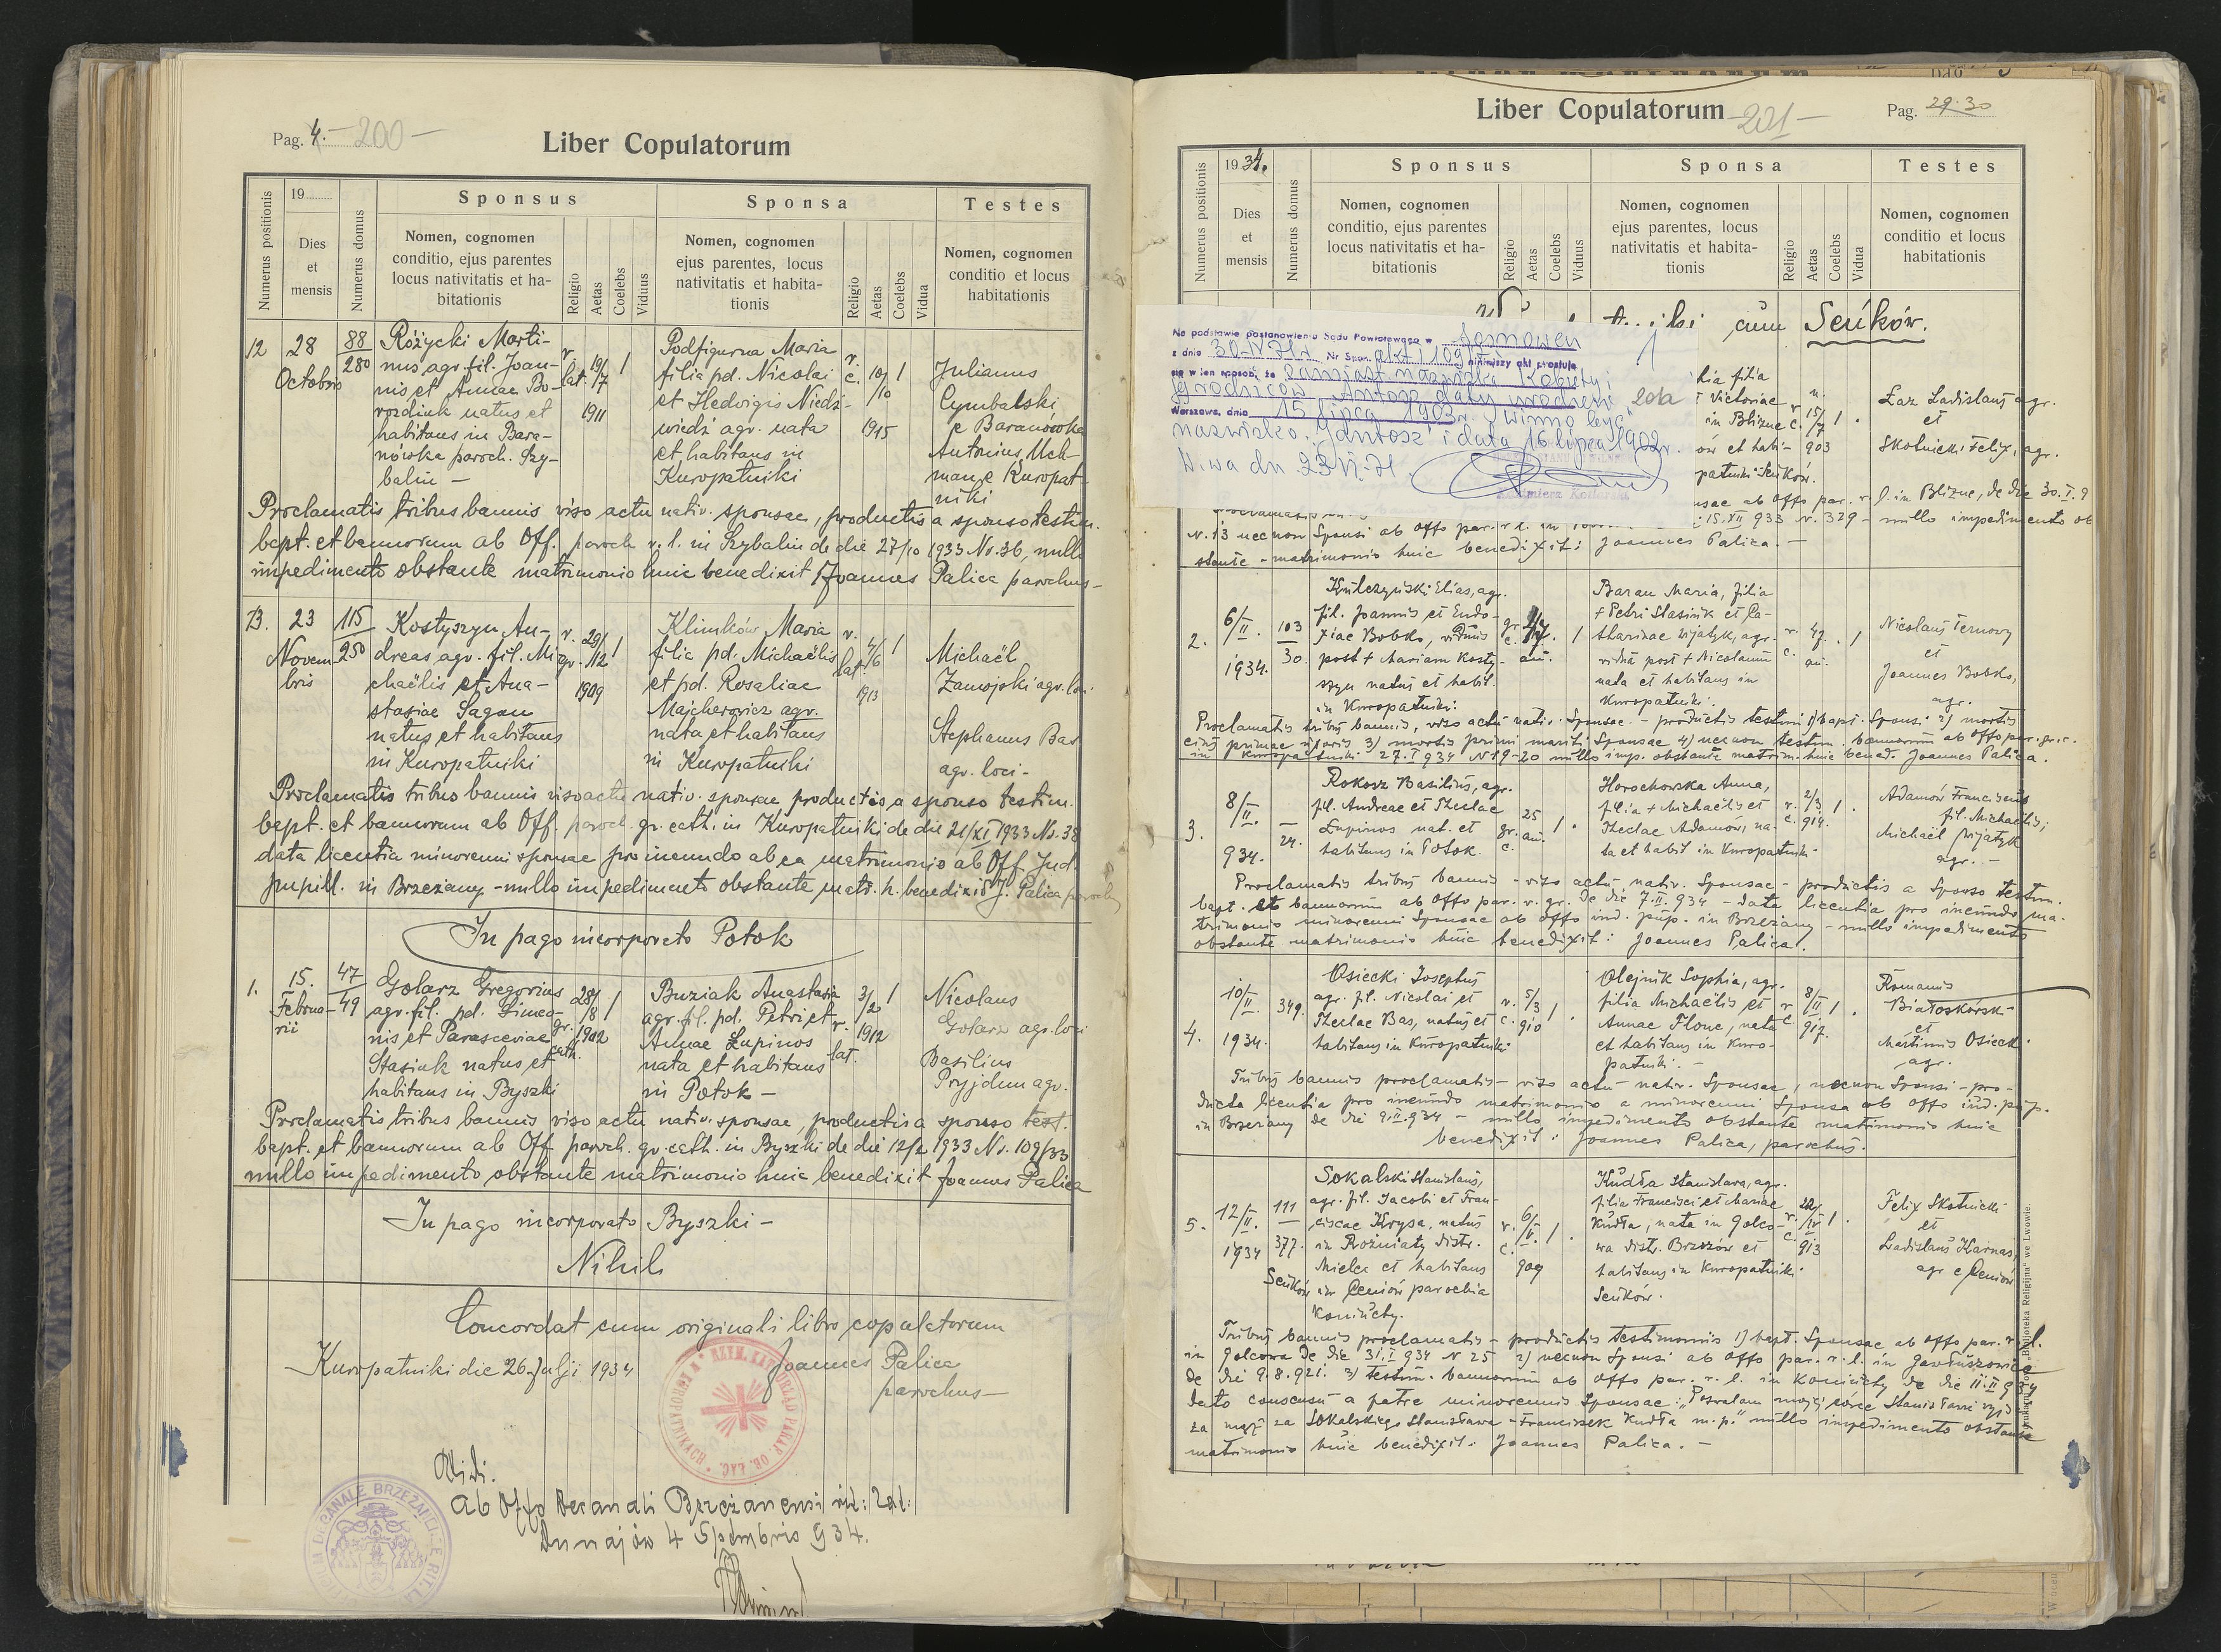 Pag. 4. - 200 -
Liber Copulatorum
Numerus positionis
19
Dies
et
mensis
Numerus domus
Sponsus
Nomen, cognomen
conditio, ejus parentes
locus nativitatis et ha-
bitationis
Religio
Aetas
Coelebs
Viduus
Sponsa
Nomen, cognomen
ejus parentes, locus
nativitatis et habita-
tionis
Religio
Aetas
Coelebs
Vidua
Testes
Nomen, cognomen
conditio et locus
habitationis
12
28
Octobris
88
280
Różycki Marti-
nus, agr. fil. Joan-
nis et Annae Bo-
rozdiuk natus et
habitans in Bara-
nówka paroch. Szy-
balin -
r.
lat.
19/
17
1911
1
Podfigurna Maria
filia pd. Nicolai
et Hedvigis Niedź-
wiedź agr. nata
et habitans in
Kuropatniki
r.
c.
10/
/10
1915
1
Julianus
Cymbalski
e Baranówka
Antonius Uch-
man e Kuropat-
niki
Proclamatis tribus bannis viso actu nativ. sponsae, productis a sponso testim.
bapt. et bannorum ab Off. paroch r. l. in Szybalin de die 27/10 1933 No. 36, nullo
impedimento obstante matrimonio huic benedixit Joannes Palica parochus -
13.
23
Novem
bris
115
250
Kostyszyn An-
dreas agr. fil. Mi-
chaëlis et Ana-
stasiae Sagan
natus et habitans
in Kuropatniki
r.
gr.
29/
12
1909
1
Klimków Maria
filia pd. Michaëlis
et pd. Rosaliae
Majcherowicz agr.
nata et habitans
in Kuropatniki
r.
lat.
4/
6
1913
1
Michaël
Zamojski agr. loci
Stephanus Bas
agr. loci -
Proclamatis tribus bannis viso actu nativ. sponsae productis a sponso testim.
bapt. et bannorum ab Off. paroch. gr. cath. in Kuropatniki de die 21/XI 1933 No. 38
data licentia minorenni sponsae pro ineundo ab ea matrimonio ab Off. Jud.
pupill. in Brzeżany - nullo impedimento obstante matr. h. benedixit J. Palica parochus
In pago incorporato Potok
1.
15.
Februa-
rii
47
49
Golarz Gregorius
agr. fil. pd. Simeo-
nis et Parasceviae
Stasiuk natus et
habitans in Byszki
gr.
cath.
28/
/8
1902
1
Buziak Anastasia
agr. fil. pd. Petri et
Annae Łupinos
nata et habitans
in Potok -
r.
lat.
3/
/2
1912
1
Nicolaus
Golarz agr. loci
Basilius
Pryjdun agr.
Proclamatis tribus bannis viso actu nativ. sponsae, productis a sponso test.
bapt. et bannorum ab Off. paroch. gr. cath. in Byszki de die 12/2 1933 No. 109/33
nullo impedimento obstante matrimonio huic benedixit Joannes Palica
In pago incorporato Byszki -
Nihil
Concordat cum originali libro copulatorum
Kuropatniki die 26 Julji 1934
Joannes Palica
parochus -
Vidi.
Ab Offo Decanali Brzeżanensi rit: lat:
Dunajów 4 Sptembris 934.
Liber Copulatorum - 201 -
Pag. 29-30
Numerus positionis
1934.
Dies
et
mensis
Numerus domus
Sponsus
Nomen, cognomen
conditio, ejus parentes
locus nativitatis et ha-
bitationis
Religio
Aetas
Coelebs
Viduus
Sponsa
Nomen, cognomen
ejus parentes, locus
nativitatis et habita-
tionis
Religio
Aetas
Coelebs
Vidua
Testes
Nomen, cognomen
conditio et locus
habitationis
cum Seńków.
Na podstawie postanowienia Sądu Powiatowego w
z dnia 30.IV.71 r. Nr Spraw. niniejszy akt prostuje
się w ten sposób, że zamiast nazwiska kobiety i
jej rodziców "Antosz" daty urodzenia
Warszawa, dnia 15 lipca 1903 r. winno być
nazwisko "Jantosz" i data 16 lipca 1902 r.
W-wa dn. 23.VI.71
filia
Victoriae
in Blizne
et habi-
Seńków.
r.
c.
15/
7
903
1.
Łaz Ladislaus agr.
et
Skotnicki Felix, agr.
ab Offo par. r. l. in Blizne, de die 30. I. 9
15. XII 933 N. 329 - nullo impedimento ob
N. 13 necnon Sponsi ab Offo par. r. l. in
stante - matrimonio huic benedixit: Joannes Palica. -
2.
6/II.
1934.
103
30.
Kulczyński Elias, agr.
fil. Joannis et Eudo-
xiae Bobko, viduus
post + Mariam Kosty-
szyn natus et habit.
in Kuropatniki.
gr.
c.
47.
an.
1
Baran Maria, filia
+ Petri Stasiuk et Ca-
tharinae Wijatyk, agr.
vidua post + Nicolaum
nata et habitans in
Kuropatniki.
r.
c.
49.
an.
1
Nicolaus Ternowy
et
Joannes Bobko,
agr.
Proclamatis tribus bannis, viso actu nativ. Sponsae. - productis testim. 1) bapt. Sponsi 2) mortis
eius primae uxoris 3) mortis primi mariti Sponsae 4) necnon testim. bannorum ab Offo par. gr. c.
in Kuropatniki 27. I 934 N 19-20 nullo imp. obstante matrim. huic bened. Joannes Palica.
3.
8/II.
934.
—
24.
Rokosz Basilius, agr.
fil. Andreae et Theclae
Łupinos nat. et
habitans in Potok.
gr.
c.
25
an.
1.
Horochowska Anna,
filia + Michaëlis et
Theclae Adamów, na-
ta et habit in Kuropatniki.
r.
c.
2/
/3
914.
1.
Adamów Franciscus
fil. Michaëlis;
Michaël Wijatyk
agr. -
Proclamatis tribus bannis - viso actu nativ. Sponsae - productis a Sponso testim.
bapt. et bannorum ab Offo par. r. gr. de die 7. II. 934 - data licentia pro ineundo ma-
trimonio minorenni Sponsae ab Offo iud. pup. in Brzeżany - nullo impedimento
obstante matrimonio huic benedixit: Joannes Palica.
4.
10/II
1934.
349.
Osiecki Josephus
agr. fil. Nicolai et
Theclae Bas, natus et
habitans in Kuropatniki
r.
c.
5/
/3
910
1.
Olejnik Sophia, agr.
filia Michaëlis et
Annae Flouc, nata
et habitans in Kuro-
patniki. -
r
c
8/
/II
917.
1.
Romanus
Białoskórski
et
Martinus Osiecki
agr.
Tribus bannis proclamatis - viso actu nativ. Sponsae, necnon Sponsi - pro-
ducta licentia pro ineundo matrimonio a minorenni Sponsa ab Offo iud. pup.
in Brzeżany de die 9. II. 934 - nullo impedimento obstante matrimonio huic
benedixit: Joannes Palica, parochus.
5.
12/II.
1934
111
—
377.
Seńków
Sokalski Stanislaus,
agr. fil. Jacobi et Fran-
ciscae Krysa, natus
in Rożniaty distr.
Mielec et habitans
in Ceniów parochia
Koniuchy.
r.
c.
6/
/V.
909
1.
Kudła Stanislava, agr.
filia Francisci et Mariae
Kudła, nata in Golco-
wa distr. Brzozów et
habitans in Kuropatniki
Seńków.
r.
c.
22/
/IV
913
1.
Felix Skotnicki
et
Ladislaus Harnas,
agr e Ceniów
Tribus bannis proclamatis - productis testimoniis 1) bapt. Sponsae ab Offo par. r. l.
in Golcowa de die 31. I 934 N 25 2) necnon Sponsi ab Offo par. r. l. in Gawłuszowice
de die 9. 8. 921. 3) testim. bannorum ab Offo par. r. l. in Koniuchy de die 11. II 934
dato consensu a patre minorennis Sponsae: "Pozwalam mojej córce Stanisławie wyjść
za mąż za Sokalskiego Stanisława - Franciszek Kudła m. p." nullo impedimento obstante
matrimonio huic benedixit: Joannes Palica. -